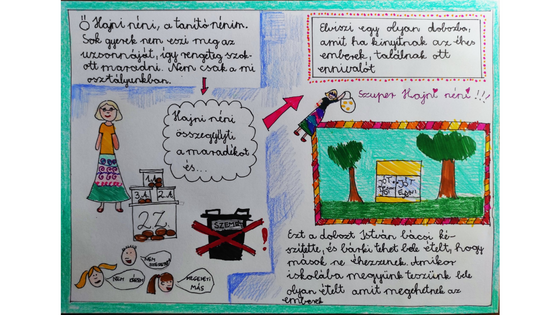 Ő Hajni néni, a tanító nénim.
Sok gyerek nem eszi meg az
uzsonnáját, így rengeteg szok-
ott maradni. Nem csak a mi
osztályunkban.
Hajni néni
összegyűjti
a maradékot
és...
Elviszi egy olyan dobozba,
amit ha kinyitnak az éhes
emberek, találnak ott
ennivalót
Szuper Hajni néni!!!
3.
2.Z
SZEMÉT
!
NEM
NEM KÉREM
MEGENNI
MÁS
JÓT
Ezt a dobozt István bácsi ké-
szítette, és bárki tehet bele ételt, hogy
mások ne éhezzenek. Amikor
iskolába megyünk teszünk bele
olyan ételt amit megehetnek az
emberek